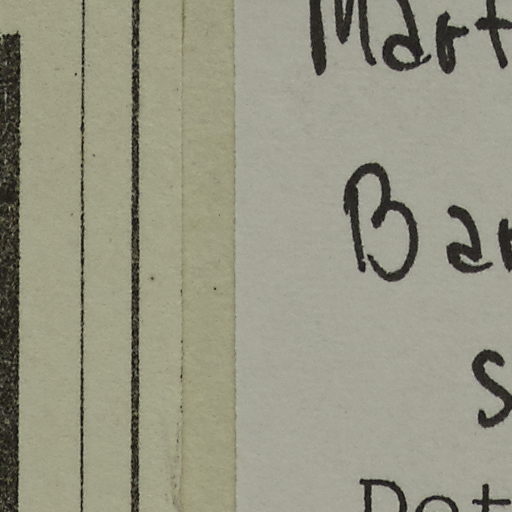 Mart
Bar
S
Det